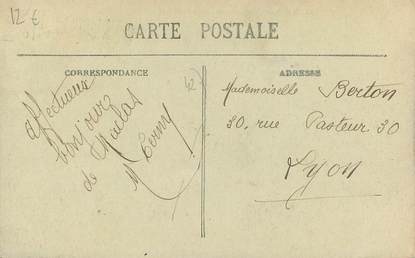 12 €
CARTE POSTALE
CORRESPONDANCE
affectueux
bonjour
de
M
ADRESSE
Mademoiselle Berton
30, rue Pasteur 30
Lyon